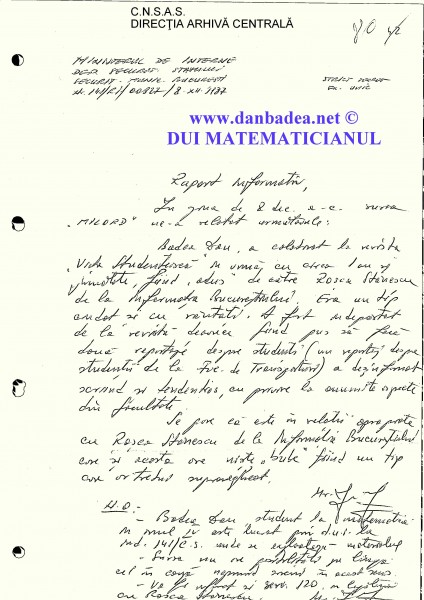 C.N.S.A.S.
DIRECŢIA ARHIVĂ CENTRALĂ
MINISTERUL DE INTERNE
DEP. SECURIT. STATULUI
SECURIT. MUNIC. BUCUREŞTI
STRICT SECRET
EX. UNIC
www.danbadea.net ©
DUI MATEMATICIANUL
Raport informativ,
În ziua de 8 dec. a-c- sursa
"MILORD" ne-a relatat următoarele:
Badea Dan, a colaborat la revista
"Viaţa Studenţească" în urmă cu circa 1 an şi
jumătate, fiind "adus" de către Roşca Stănescu
de la Informaţia Bucureştiului. Era un tip
ciudat şi cu răutăţi. A fost îndepărtat
de la revistă deoarece fiind pus să facă
două reportaje despre studenţi (un reportaj despre
studenţii de la fac. de Transporturi) a dezinformat
scriind şi tendenţios, cu privire la anumite aspecte
din facultate.
Se pare că este în relaţii apropiate
cu Roşca Stănescu de la Informaţia Bucureştiului
care şi acesta are nişte "bube" fiind un tip
care ar trebui supravegheat.
N.O.
- Badea Dan student la matematică
în anul IV este lucrat prin d.u.i. la
ind. 141/C.S. unde se exploatează materialul
- Sursa nu are posibilităţi pe lângă
cel în cauză
cu Roşca Stănescu